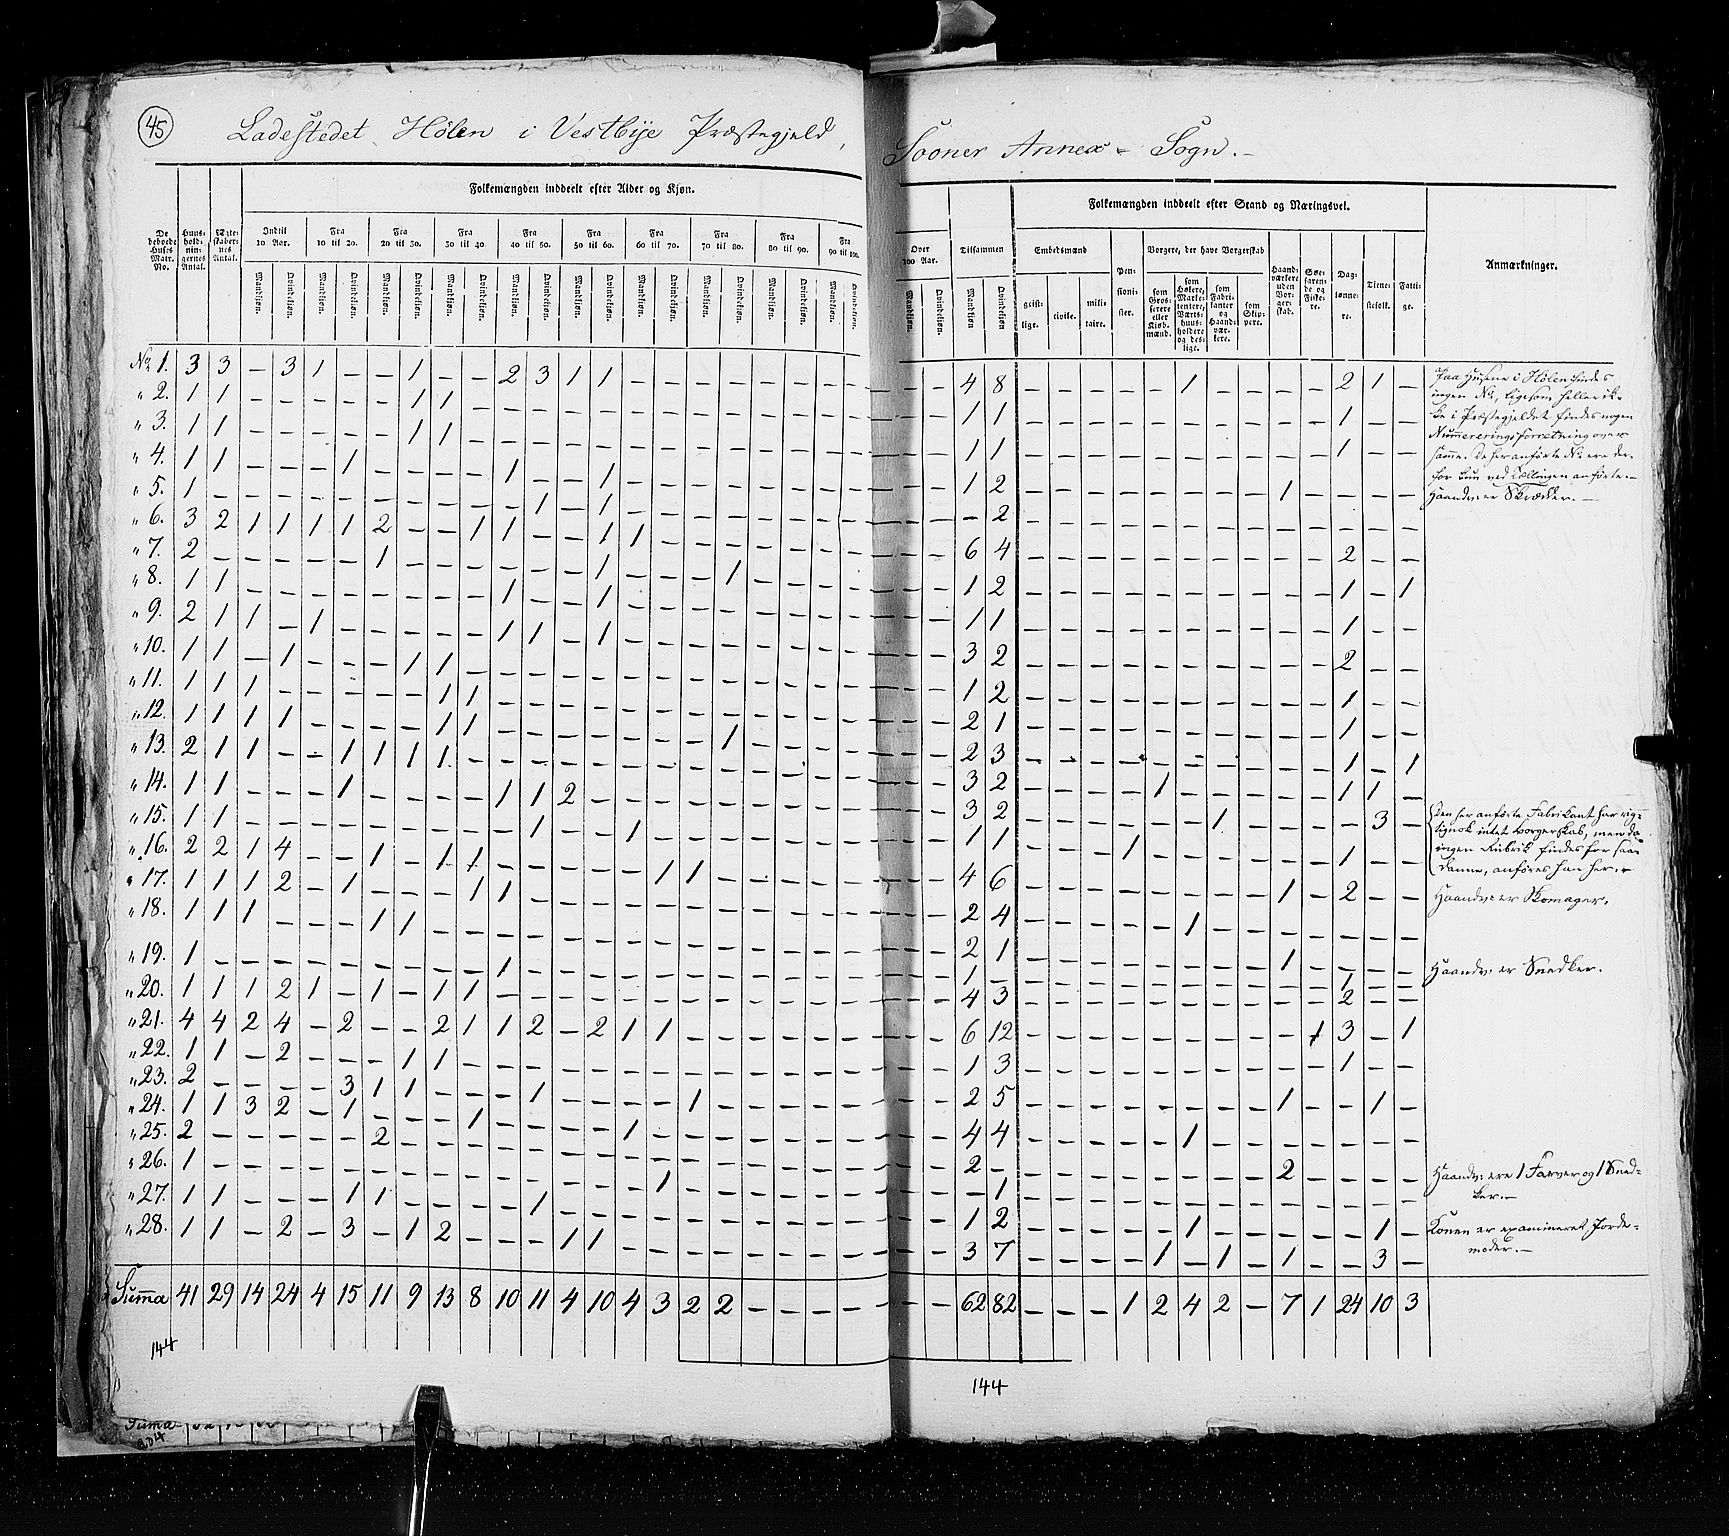 45
Ladestedet Hølen i Vestbije Præstegjeld, Sooner Annex = Sogn.
Folkemængden inddeelt efter Alder og Kjøn.
Folkemængden inddeelt efter Stand og Næringsvei.
De beboede Huus Matr. No.
Huusholdningernes Antal.
Ægteskabernes Antal.
Indtil 10 Aar.
Fra 10 til 20.
Fra 20 til 30.
Fra 30 til 40.
Fra 40 til 50.
Fra 50 til 60.
Fra 60 til 70.
Fra 70 til 80.
Fra 80 til 90.
Fra 90 til 100.
Over 100 Aar.
Tilsammen
Mandkjøn. Qvindekjøn.
Embedsmænd
geistlige. civile. militaire.
Pensionister.
Borgere, der have Borgerskab
som Grosserere eller Kjøbmænd.
som Høkere, Marketentere, Værtshuusholdere og deslige.
som Fabrikanter og Haandværkere.
som Skippere.
Haandværkere uden Borgerskab.
Søefarende og Fiskere.
Daglønnere.
Tienestefolk.
Fattige.
Anmærkninger.
No 1. 3 3 – 3 1 – – 1 – – 2 3 1 1 – – – – 4 8 – – – – – 1 – – – – 2 1 –
" 2. 1 1 – – – – – 1 1 – – – 1 1 1
" 3. 1 1 – – – – – 1 1 – – – 1 1 1
" 4. 1 1 – – – 1 – – – – 1 – – 1 1 2 1
" 5. 1 – – – – – – – – – – 1 – 1 – 2
" 6. 3 2 1 1 1 1 2 – – 1 1 – – 1 1 6 4 2
" 7. 2 – – – – – 1 – – – – – – 1 – – – 1 1 2 1 – 1
" 8. 1 1 – – – – – – – – 1 – – 1 1 1 1
" 9. 2 1 1 – 1 – – – – – 1 1 – 1 3 2 2
" 10. 1 1 – 1 – – – 1 1 – 1 2 1
" 11. 1 1 1 – – – – – 1 1 2 1 1
" 12. 1 1 1 1 – – – – 1 1 – – – – – – – 1 2 3 1 – 1
" 13. 2 1 1 – – 1 1 1 1 – 3 2 1 1 1 –
" 14. 1 1 – – – 1 – – – – 1 1 2 3 2 1 3 –
" 15. 1 1 – – – – – – – – – 1 – – 1 1 1 1 1
" 16. 2 2 1 4 – – 1 – 1 1 – – – – – 1 1 4 6 1 – 2
" 17. 1 1 1 2 – 1 – – – 1 1 2 4 1
" 18. 1 1 1 – – – 1 1 2 1 1
" 19. 1 – – – – – – – – – 1 1 – 1
" 20. 1 1 1 2 1 – 1 – 1 1 4 3 2
" 21. 4 4 2 4 – 2 – – 2 1 1 2 – 2 1 1 6 12 1 3 – 1
" 22. 1 1 – 2 – – – 1 1 1 3 1
" 23. 2 – – – – 3 1 1 – – – 1 – – – – 1 2 5 1 – – 1 –
" 24. 1 1 3 2 – 1 – – – 1 – – – – 1 4 4 1
" 25. 2 – – – – – 2 2 – 2
" 26. 1 – – – – – – – – – – – – – – 1 – 1
" 27. 1 1 – – – 1 1 – – – – 1 1 2 1 1 –
" 28. 1 1 – 2 – 3 – 1 2 – – – 1 1 3 7 1 – 1 – 1 – – 3 –
Summa 41 29 14 24 4 15 11 9 13 8 10 11 4 10 4 3 2 2 – – – – – – 62 82 – – – 1 2 4 2 – 7 1 24 10 3
144
144
Paa Husene i Hølen findes
ingen No, ligesom heller ik-
ke i Præstegjeldet findes nogen
Nummereringsforretning over
samme. De her anførte No ere der-
for kun ved Tællingen anførte.–
Haandv: er Skrædder.–
Den her anførte Fabrikant har rig-
tignok intet Borgerskab, men da
ingen Rubrik findes for saa-
danne, anføres han her.
Haandv: er Skomager.
Haandv: er Snedker.
Haandv: ere 1 Farver og 1 Sned-
ker.–
Konen er examineret Jorde-
moder.–
Suma